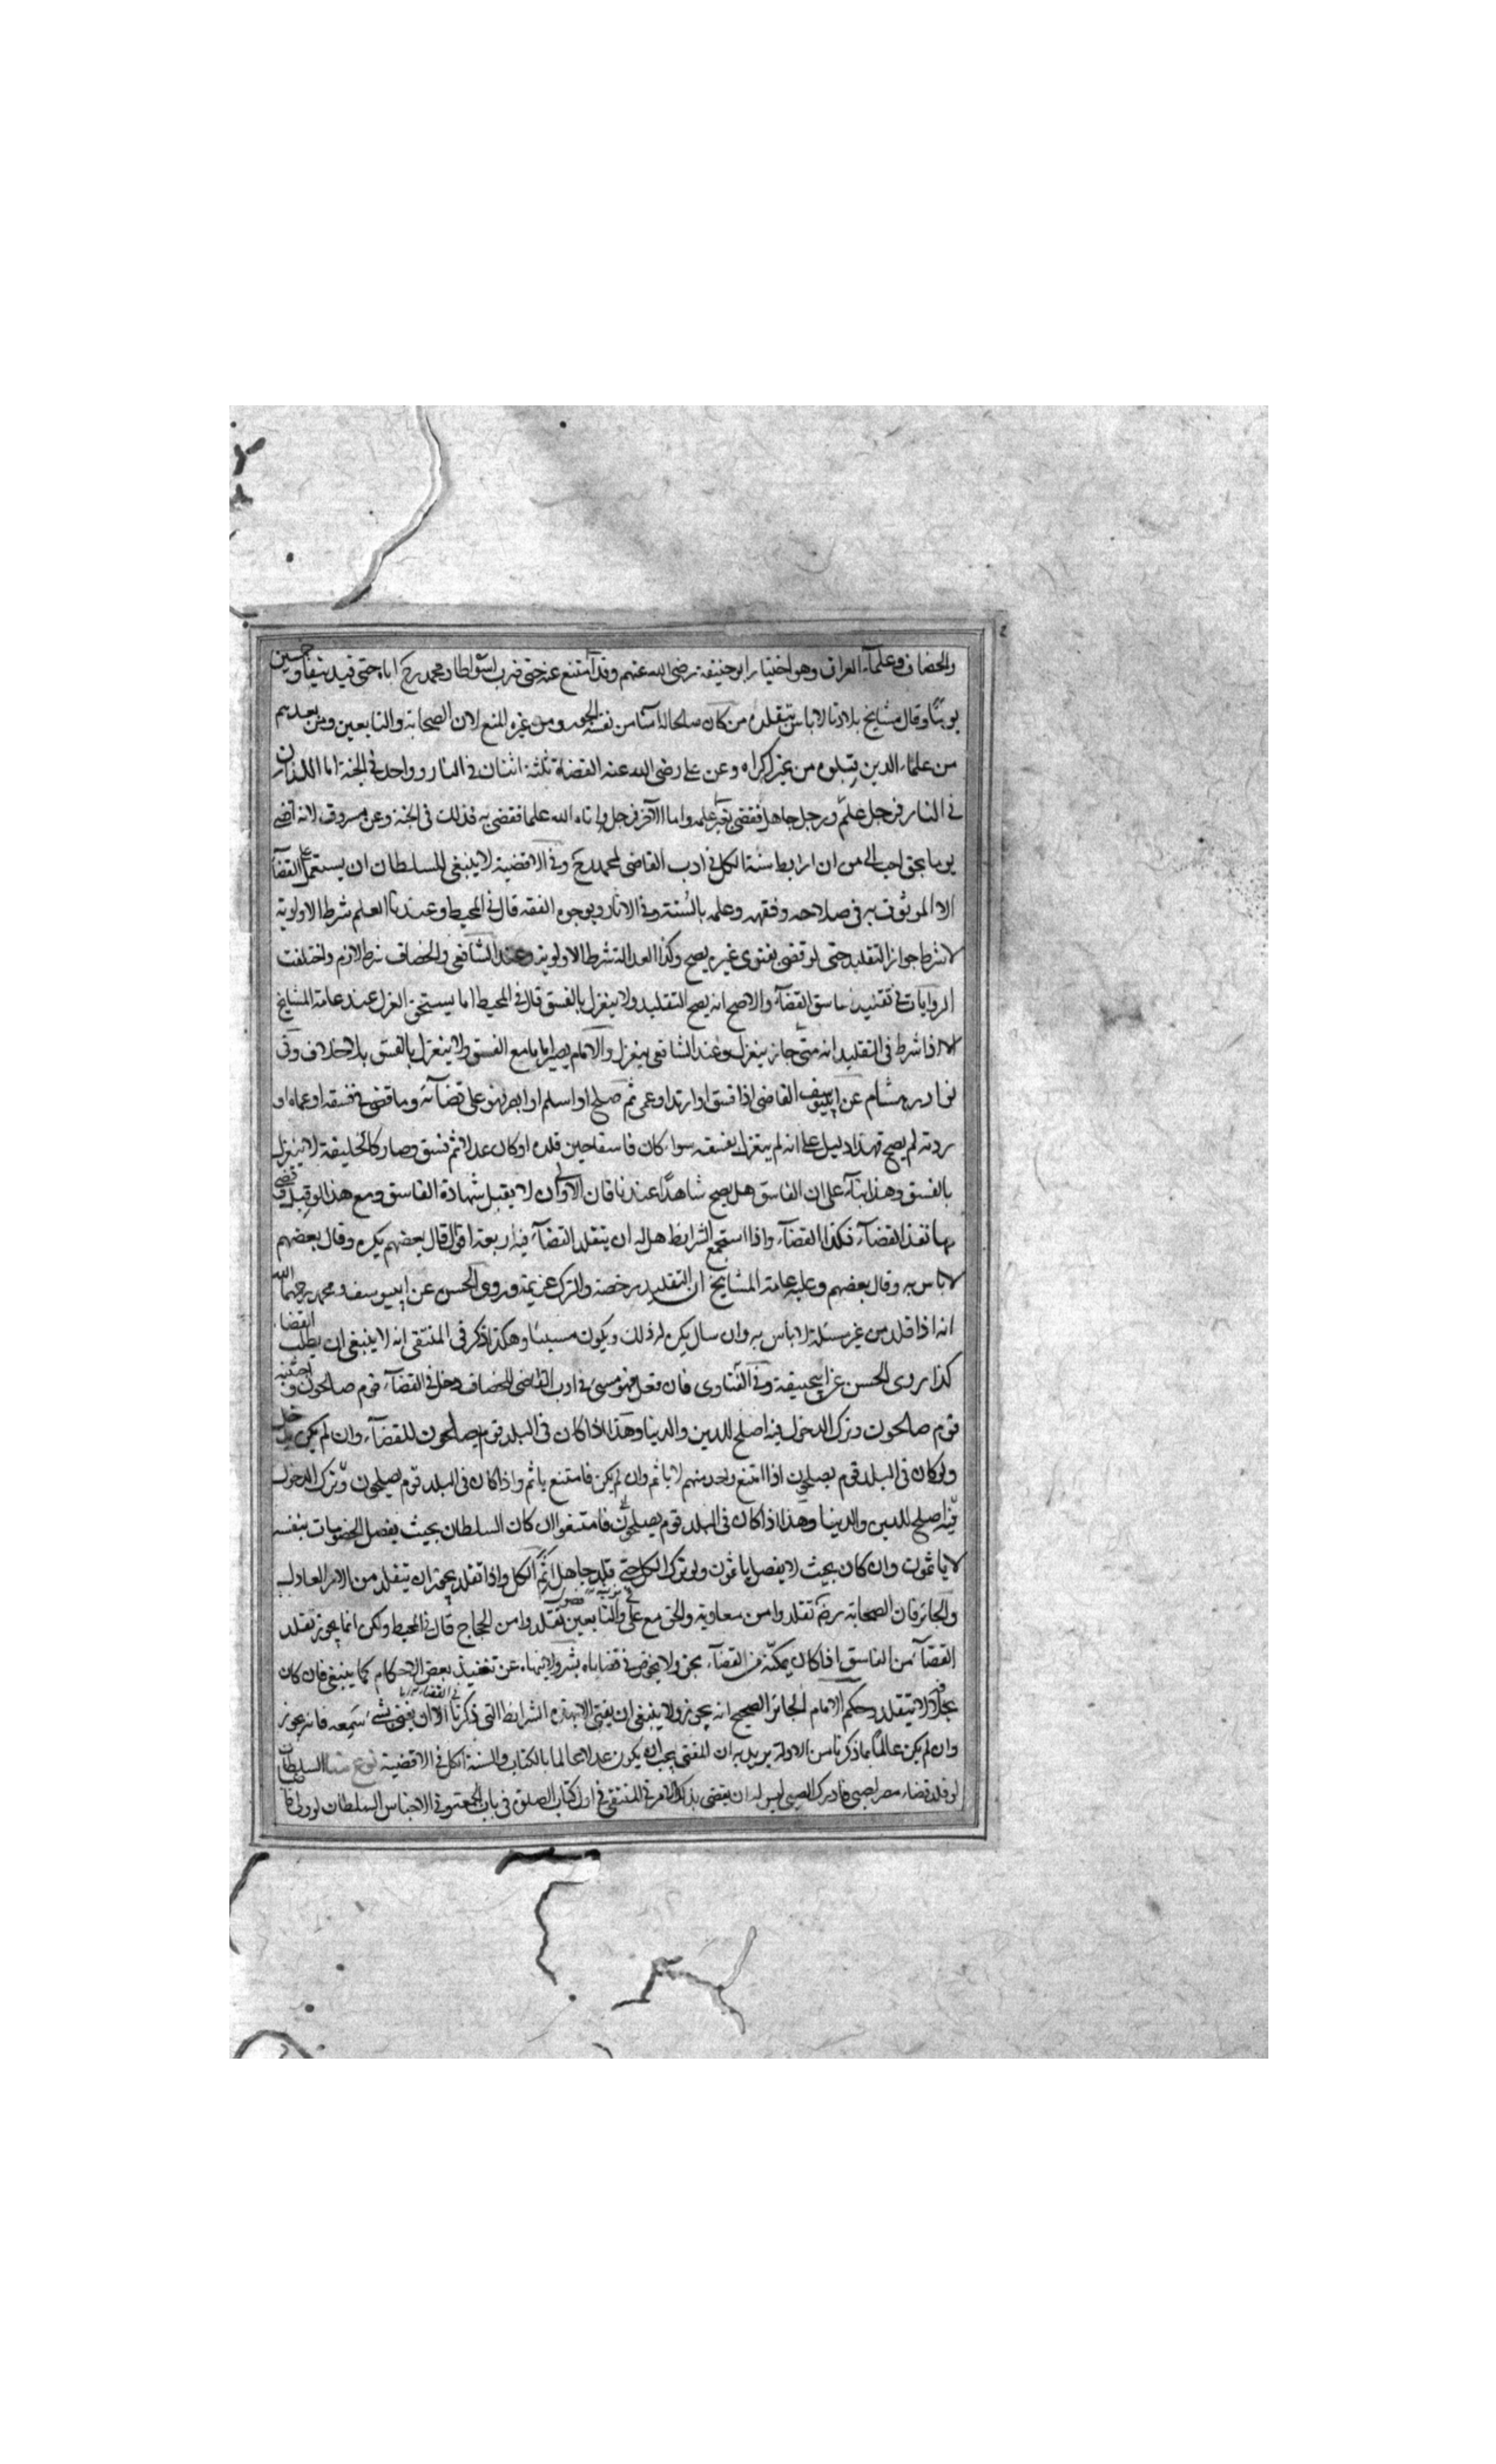 والخصاف وعلماء العراق وهو اختيار ابو حنيفة رضى الله عنهم وقد امتنع عنه حتى ضرب اسواطا ومحمد رح اباه حتى قيد نيفا وخمسين
يوما وقال مشايخ بلادنا لا باس بتقلده من كان صلحا له آمنا من نفسه الجور ومن غيره المنع لان الصحابة والتابعين ومن بعدهم
من علماء الدين قبلوه من غير اكراه وعن على رضى الله عنه القضاة ثلثة اثنان فى النار وواحد فى الجنة اما اللذان
فى النار فرجل علم ورجل جاهل فقضى بغير علمه واما الآخر فرجل واتاه الله علما فقضى به فذلك فى الجنة وعن مسروق لانه اقضى
يوما بحق احب الى من ان ارابط سنة الكل فى ادب القاضى لمحمد رح وفى الاقضية لا ينبغى للسلطان ان يستعمل على القضا
الا الموثوق به فى صلاحه وفقهه وعلمه بالسنة وفى الاثار وبوجوه الفقه قال فى المحيط وعندنا العلم شرط الاولوية
لا شرط جواز التقليد حتى لو قضى بفتوى غيره يصح وكذا العدالة شرط الاولوية وعند الشافعى والخصاف شرط لازم واختلفت
الروايات فى تقليد فاسق القضاء والاصح انه يصح التقليد ولا ينعزل بالفسق قال فى المحيط اما يستحق العزل عند عامة المشايخ
الا اذا شرط فى التقليد انه متى جاز ينعزل وعند الشافعى ينعزل والامام يصير اماما مع الفسق ولا ينعزل بالفسق بلا خلاف وفى
نوادر هشام عن ابى يوسف القاضى اذا فسق او ارتد او عمى ثم صلح او اسلم او ابصر فهو على قضائه وما قضى فى فسقه او عماه او
ردته لم يصح فهذا دليل على انه لم ينعزل بفسقه سواء كان فاسقا حين قلده او كان عدلا ثم فسق وصار كالخليفة لا ينعزل
بالفسق وهذا بناء على ان الفاسق هل يصح شاهدا عندنا فان الاولى ان لا يقبل شهادة الفاسق ومع هذا لو قبل وقضى
بها نفذ القضاء فكذا القضاء واذا استجمع الشرائط هل له ان يتقلد القضاء فيه اربعة اقوال قال بعضهم يكره وقال بعضهم
لا باس به وقال بعضهم وعليه عامة المشايخ ان التقليد رخصة والترك عزيمة وروى الحسن عن ابى يوسف ومحمد رحمهما الله
انه اذا قلد من غير مسئلة لا بأس به وان سال يكره له ذلك ويكون مسيئا وهكذا ذكر فى المنتقى انه لا ينبغى ان يطلب القضاء
كذا روى الحسن عن ابى حنيفة وفى الفتاوى فان فعل فهو مسئ فى ادب القاضى للخصاف دخل فى القضاء قوم صالحون واجتنبه
قوم صالحون وترك الدخول فيه اصلح للدين والدنيا وهذا اذا كان فى البلد قوم يصلحون للقضاء وان لم يكن يدخل
ولو كان فى البلد قوم يصلحون اذا امتنع واحد منهم لا ياثم وان لم يكن فامتنع ياثم واذا كان فى البلد قوم يصلحون وترك الدخول
فيه اصلح للدين والدنيا وهذا اذا كان فى البلد قوم يصلحون فامتنعوا ان كان السلطان بحيث يفصل الخصومات بنفسه
لا ياثمون وان كان بحيث لا يفصل ياثمون ولو ترك الكل حتى قلد جاهل اثم الكل واذا تقلد يجوز ان يتقلد من الامر العادل
والجائر فان الصحابة رضهم تقلدوا من معاوية والحق مع على والتابعين تقلدوا من الحجاج قال فى المحيط ولكن انما يجوز تقلد
القضاء من الفاسق اذا كان يمكنه من القضاء بحق ولا يخوض فى قضاياه بشر ولا ينهاه عن تنفيذ بعض الاحكام كما ينبغى فان كان
بخلافه لا يتقلد وحكم الامام الجائر الصحيح انه يجوز ولا ينبغى ان يفتى الا بهذه الشرائط التى ذكرنا الا ان يفتى بشئ سمعه فانه يجوز
وان لم يكن عالما بما ذكرنا من الادلة يريد به ان المفتى يجب ان يكون عدلا عالما بالكتاب والسنة الكل فى الاقضية نوع منه السلطان
لو قلد قضاء مصر لصبى فادرك الصبى ليس له ان يقضى بذلك الامر فى المنتقى فى اول كتاب الصلوة فى باب الجمعة وفى الاجناس السلطان لو ولى